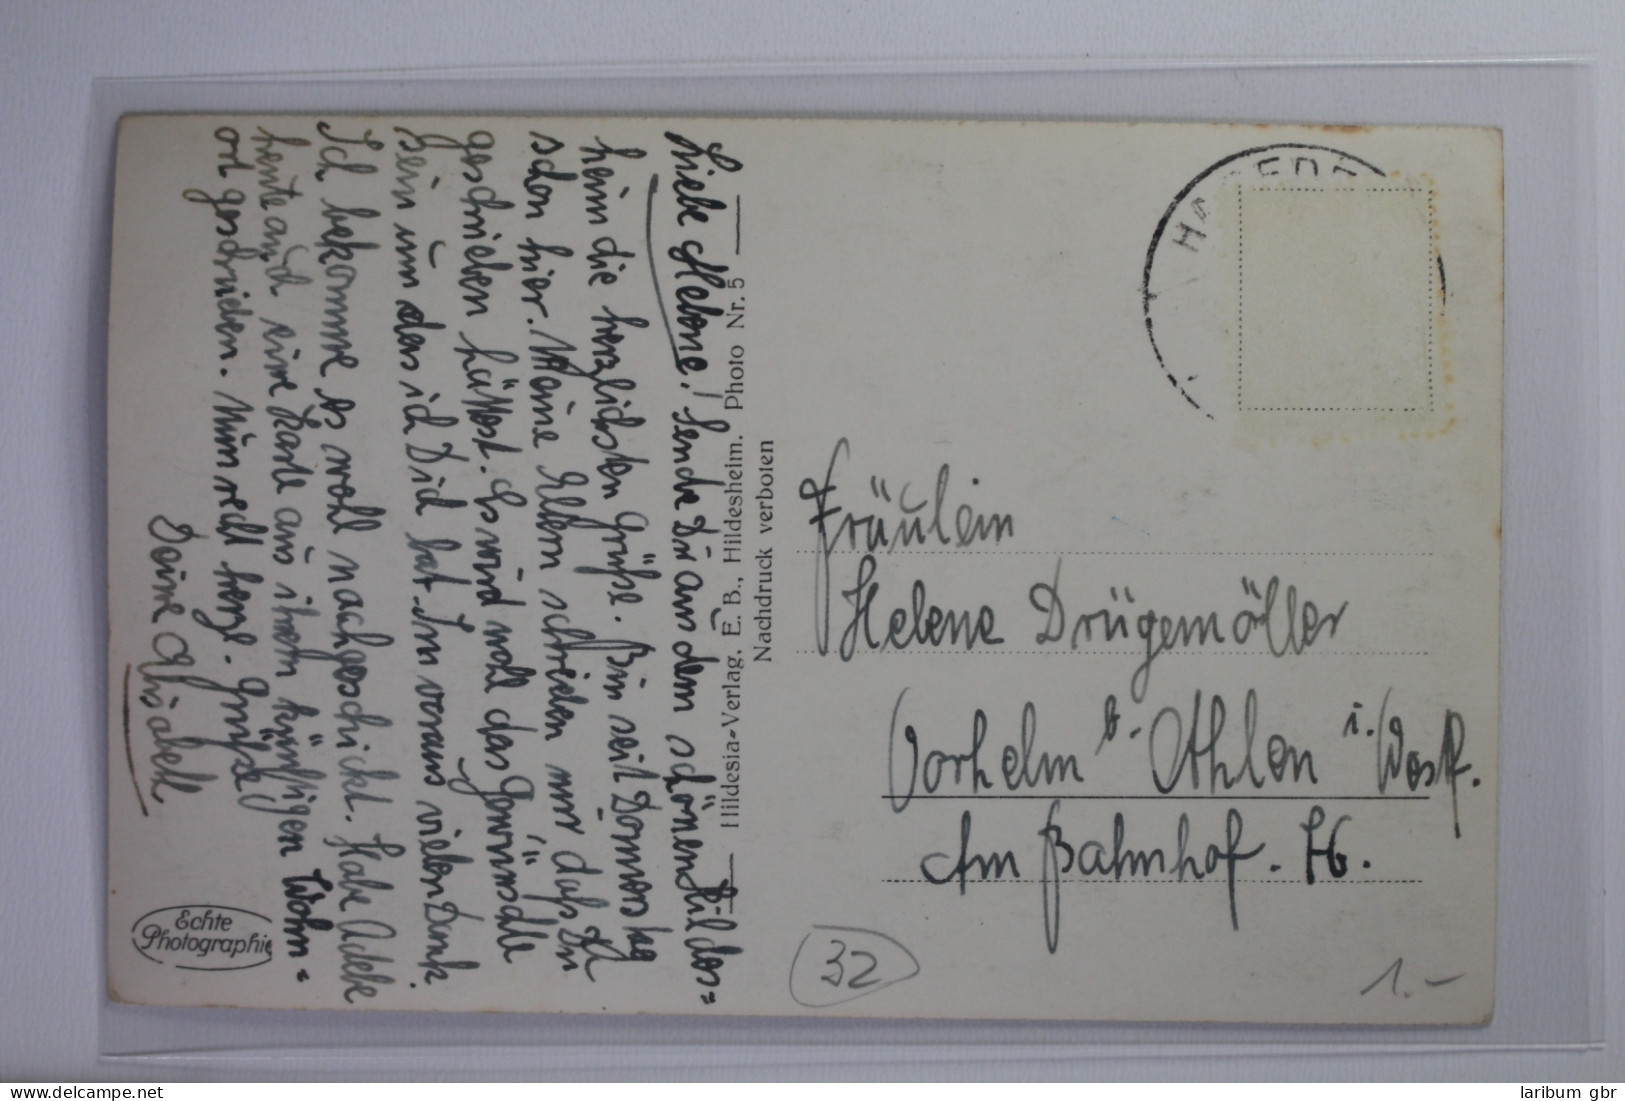 Liebe Helene! Sende Dir aus dem schönen Hildes=
heim die herzlichsten Grüße. Bin seit Donnerstag
schon hier. Meine Eltern schrieben mir daß Du
geschrieben hättest. Es wird wohl das Gewünschte
sein um das ich Dich bat. Im voraus vielen Dank
Ich bekomme es wohl nachgeschickt. Habe Adele
heute auch eine Karte aus ihrem künftigen Wohn=
ort geschrieben. Nun recht herzl. Grüße
Deine Elisabeth
Echte
Photographie
Hildesia-Verlag, E. B., Hildesheim. Photo Nr. 5
Nachdruck verboten
Fräulein
Helene Drügemöller
Vorhelm b. Ahlen i. Westf.
Am Bahnhof. 76.
32
1.-
laribum gbr
delcampe.net